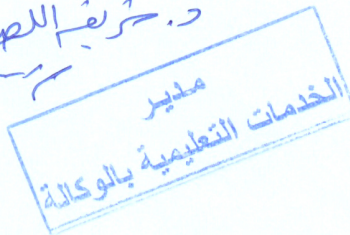 د.
مدير
الخدمات التعليمية بالوكالة